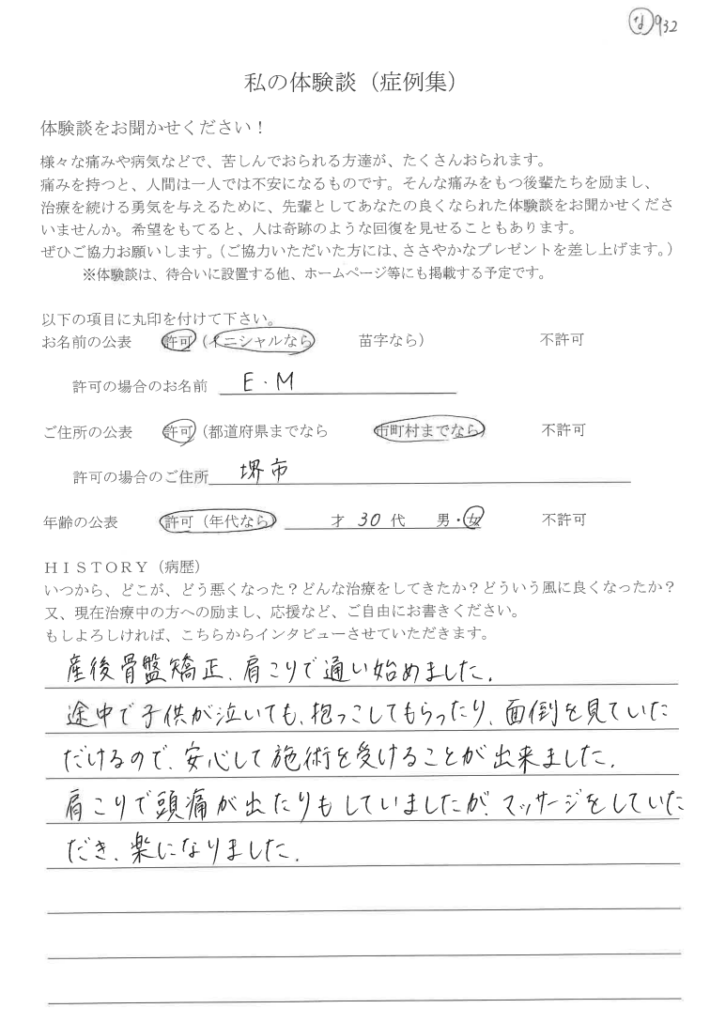 な 932
私の体験談（症例集）
体験談をお聞かせください！
様々な痛みや病気などで、苦しんでおられる方達が、たくさんおられます。
痛みを持つと、人間は一人では不安になるものです。そんな痛みをもつ後輩たちを励まし、
治療を続ける勇気を与えるために、先輩としてあなたの良くなられた体験談をお聞かせくださ
いませんか。希望をもてると、人は奇跡のような回復を見せることもあります。
ぜひご協力お願いします。（ご協力いただいた方には、ささやかなプレゼントを差し上げます。）
※体験談は、待合いに設置する他、ホームページ等にも掲載する予定です。
以下の項目に丸印を付けて下さい。
お名前の公表 許可（イニシャルなら 苗字なら） 不許可
許可の場合のお名前 E・M
ご住所の公表 許可（都道府県までなら 市町村までなら） 不許可
許可の場合のご住所 堺市
年齢の公表 許可（年代なら） 才 30代 男・女 不許可
ＨＩＳＴＯＲＹ（病歴）
いつから、どこが、どう悪くなった？どんな治療をしてきたか？どういう風に良くなったか？
又、現在治療中の方への励まし、応援など、ご自由にお書きください。
もしよろしければ、こちらからインタビューさせていただきます。
産後骨盤矯正、肩こりで通い始めました。
途中で子供が泣いても、抱っこしてもらったり、面倒を見ていた
だけるので、安心して施術を受けることが出来ました。
肩こりで頭痛が出たりもしていましたが、マッサージをしていた
だき、楽になりました。